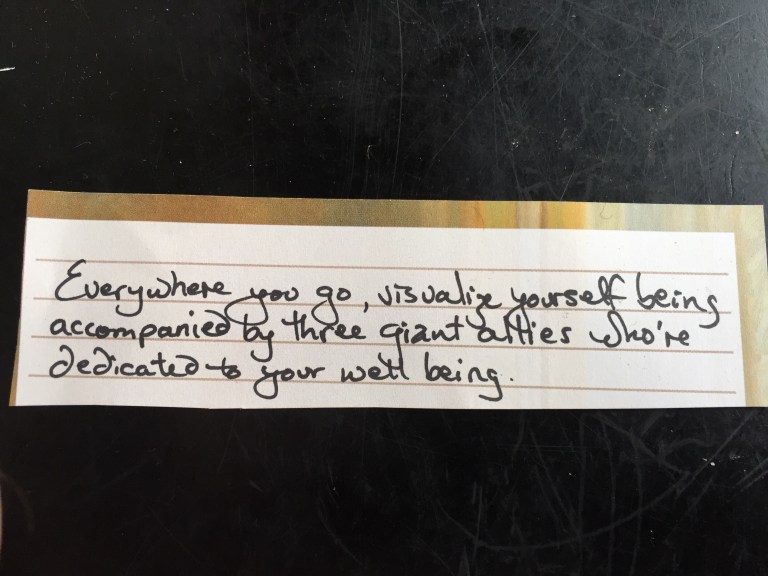 Everywhere you go, visualize yourself being
accompanied by three giant allies who're
dedicated to your well being.